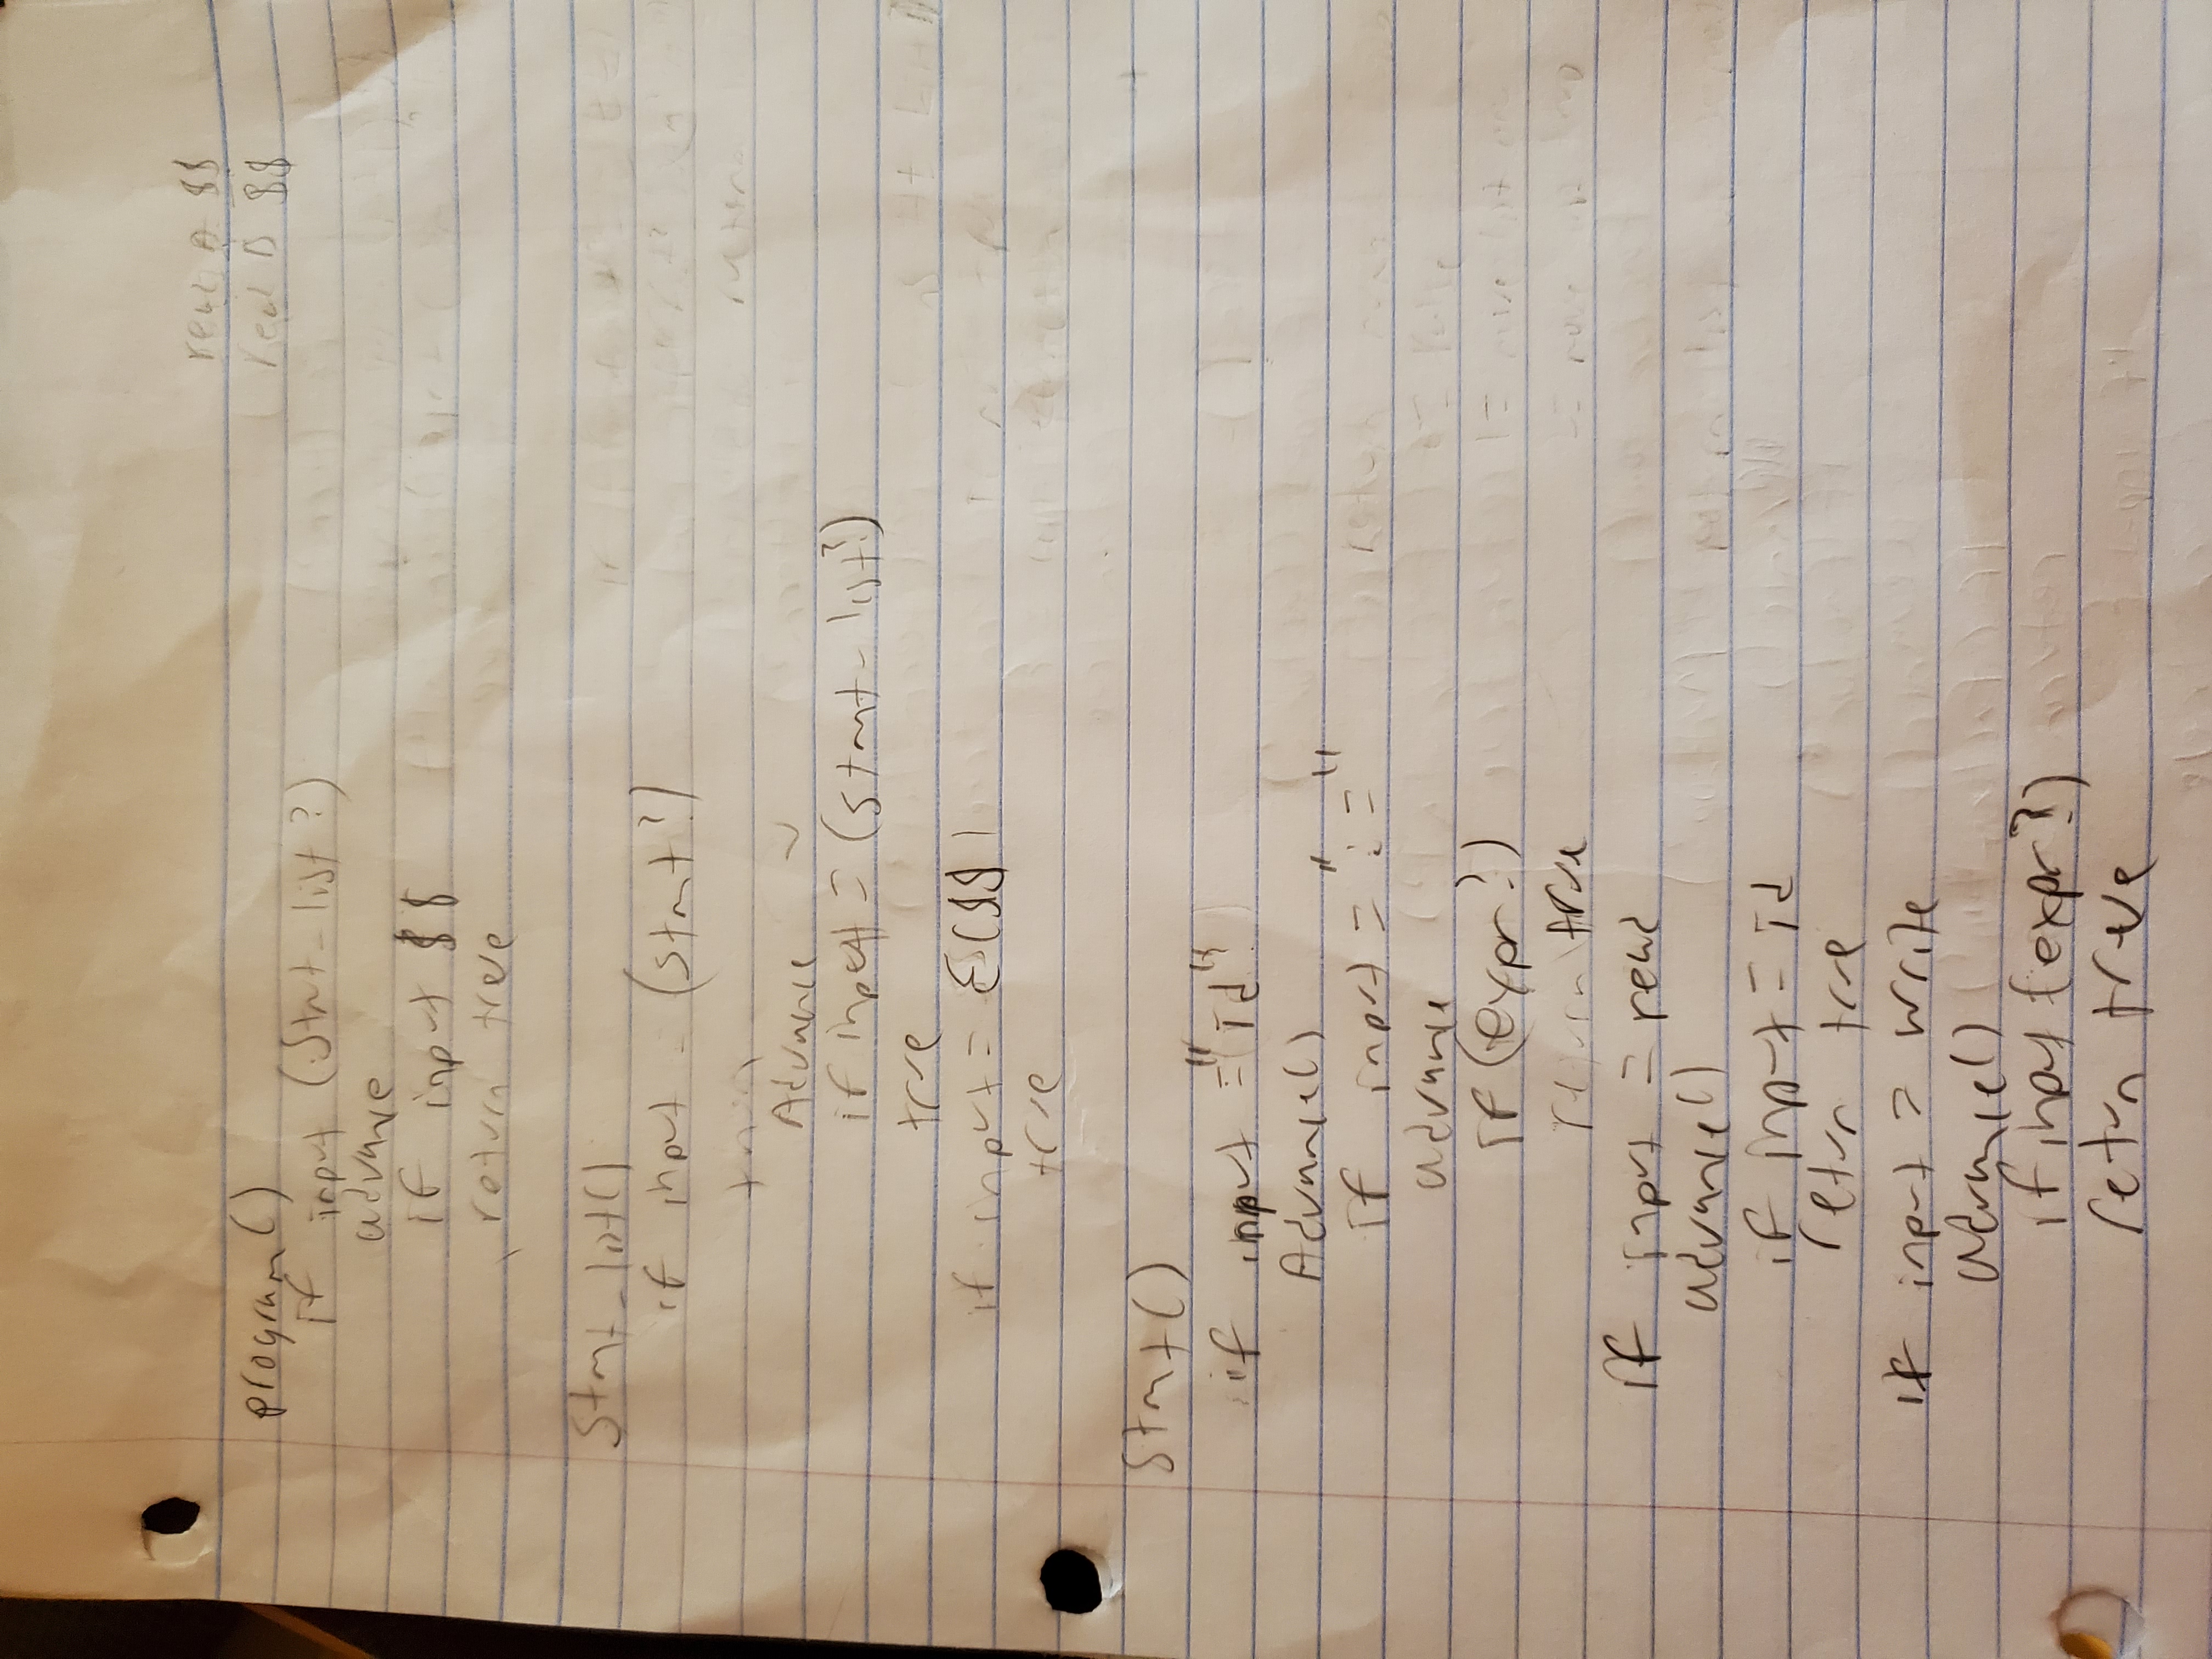 read A $$
read B $$
program()
if input (Stmt_list?)
advance
if input $$
return true
Stmt_list()
if input = (stmt?)
Advance
if input = (stmt_list?)
true
if input = ε($$)
true
Stmt()
if input = "id"
Advance()
if input = ":="
advance
if (expr?)
return true
if input = read
advance()
if input = id
return true
if input = write
advance()
if input (expr?)
return true